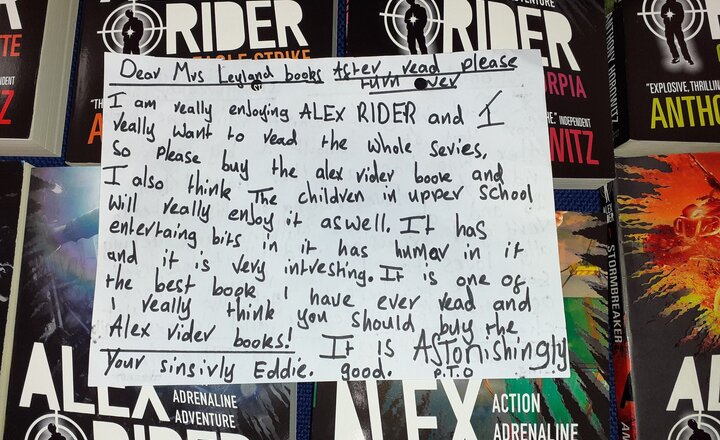 ADVENTURE
RIDER
RIDER
EAGLE STRIKE
"EXPLOSIVE, THRILLING
ANTHO
INDEPENDENT
WITZ
Dear Mrs Leyland books After read please
turn over
I am really enjoying ALEX RIDER and I
really want to read the whole series,
so please buy the alex rider book and
I also think The children in upper school
will really enjoy it aswell. It has
entertaing bits in it has humer in it
and it is very intresting. It is one of
the best book i have ever read and
i really think you should buy the
Alex rider books! It is Astonishingly
Your sinsirly Eddie. good. P.T.O
STORMBREAKER
ALEX
ADRENALINE
ADVENTURE
RIDER
ALEX
ACTION
ADRENALINE
AL